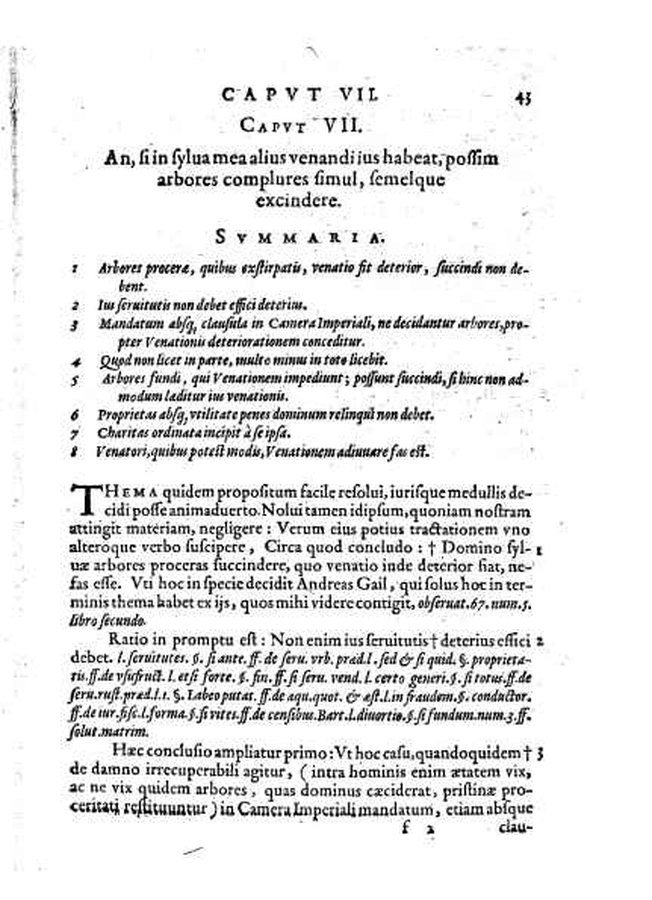 CAPVT VII. 43
CAPVT VII.
An, ſi in ſylua mea alius venandi ius habeat, poſſim
arbores complures ſimul, ſemelque
excindere.
SVMMARIA.
1 Arbores proceræ, quibus exſtirpatis, venatio fit deterior, ſuccindi non de-
bent.
2 Ius ſeruitutis non debet effici deterius.
3 Mandatum abſq; clauſula in Camera Imperiali, ne decidantur arbores, pro-
pter Venationis deteriorationem conceditur.
4 Quod non licet in parte, multo minus in toto licebit.
5 Arbores fundi, qui Venationem impediunt; poſſunt ſuccindi, ſi hinc non ad-
modum læditur ius venationis.
6 Proprietas abſq; vtilitate penes dominum relinqui non debet.
7 Charitas ordinata incipit à ſe ipſa.
8 Venatori, quibus poteſt modis, Venationem adiuuare fas eſt.
THEMA quidem propoſitum facile reſolui, iuriſque medullis de-
cidi poſſe animaduerto. Nolui tamen idipſum, quoniam noſtram
attingit materiam, negligere: Verum eius potius tractationem vno
alteroque verbo ſuſcipere, Circa quod concludo: † Domino ſyl- 1
uæ arbores proceras ſuccindere, quo venatio inde deterior fiat, ne-
fas eſſe. Vti hoc in ſpecie decidit Andreas Gail, qui ſolus hoc in ter-
minis thema habet ex ijs, quos mihi videre contigit, obſeruat. 67. num. 5.
libro ſecundo.
Ratio in promptu eſt: Non enim ius ſeruitutis † deterius effici 2
debet. l. ſeruitutes. §. ſi ante. ff. de ſeru. vrb. præd. l. ſed & ſi quid. §. proprieta-
ris. ff. de vſufruct. l. etſi forte. §. fin. ff. ſi ſeru. vend. l. certo generi. §. ſi totus. ff. de
ſeru. ruſt. præd. l. 1. §. Labeo putat. ff. de aqu. quot. & æſt. l. in fraudem. §. conductor.
ff. de iur. fiſc. l. forma. §. ſi vites. ff. de cenſibus. Bart. l. diuortio. §. ſi fundum. num. 3. ff.
ſolut. matrim.
Hæc concluſio ampliatur primo: Vt hoc caſu, quandoquidem † 3
de damno irrecuperabili agitur, (intra hominis enim ætatem vix,
ac ne vix quidem arbores, quas dominus cæciderat, priſtinæ pro-
ceritati reſtituuntur) in Camera Imperiali mandatum, etiam abſque
f 2 clau-